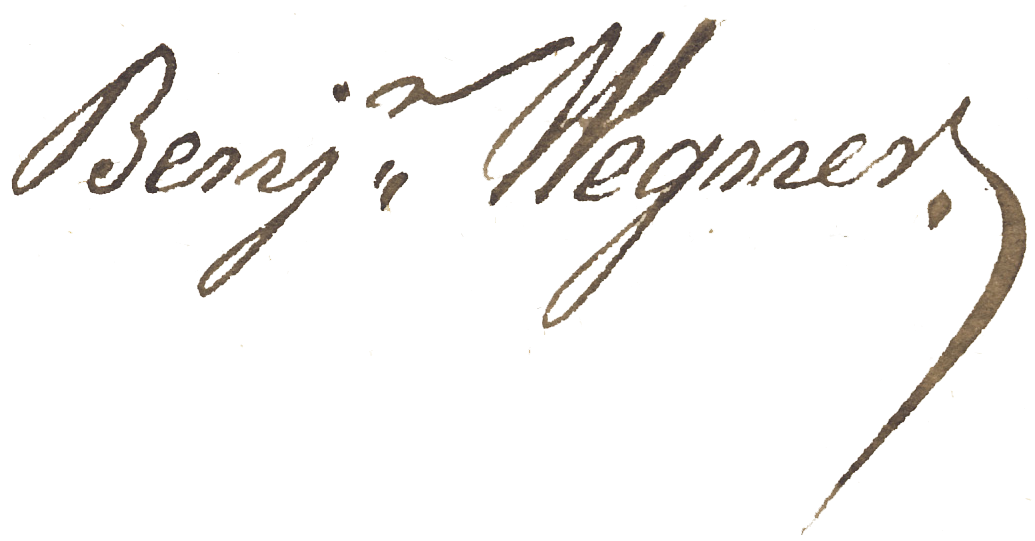 Benjn Wegner.